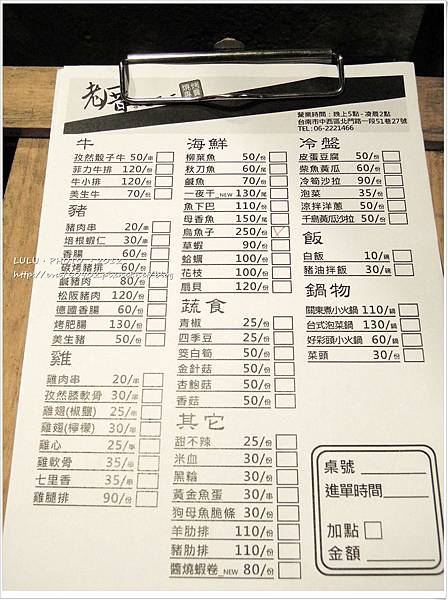 老
燒烤
串賣
營業時間：晚上5點-凌晨2點
台南市中西區北門路一段51巷27號
TEL: 06-2221466
牛
孜然骰子牛 50/串
菲力牛排 120/份
牛小排 120/份
美生牛 70/份
豬
豬肉串 20/串
培根蝦仁 30/串
香腸 60/份
碳烤豬排 60/份
鹹豬肉 80/份
松阪豬肉 120/份
德國香腸 60/份
烤肥腸 130/份
美生豬 50/份
雞
雞肉串 20/串
孜然膝軟骨 30/串
雞翅(椒鹽) 25/串
雞翅(檸檬) 30/串
雞心 25/串
雞軟骨 35/串
七里香 35/串
雞腿排 90/份
海鮮
柳葉魚 50/份
秋刀魚 60/份
鹹魚 70/份
一夜干_NEW 130/尾
魚下巴 110/份
母香魚 150/尾
烏魚子 250/份
草蝦 90/份
蛤蠣 100/份
花枝 100/份
扇貝 120/份
蔬食
青椒 25/份
四季豆 25/份
筊白筍 50/份
金針菇 50/份
杏鮑菇 50/份
香菇 50/份
其它
甜不辣 25/份
米血 30/份
黑輪 30/份
黃金魚蛋 30/串
狗母魚脆條 30/份
羊肋排 110/份
豬肋排 110/份
醬燒蝦卷_NEW 80/份
冷盤
皮蛋豆腐 50/份
柴魚黃瓜 60/份
冷筍沙拉 90/份
泡菜 35/份
涼拌洋蔥 50/份
千島黃瓜沙拉 50/份
飯
白飯 10/碗
豬油拌飯 30/碗
鍋物
關東煮小火鍋 110/鍋
台式泡菜鍋 130/鍋
好彩頭小火鍋 60/鍋
菜頭 30/份
桌號
進單時間
加點
金額